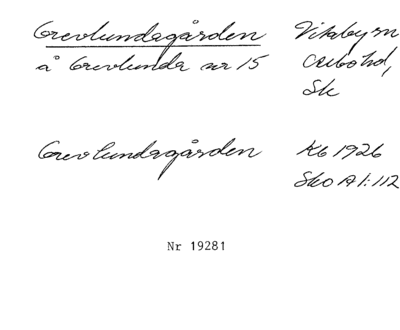 Grevlundagården Vitaby sn
å Grevlunda nr 15 Albo hd,
Sk
Grevlundagården Kb 1926
SkO A1:112
Nr 19281